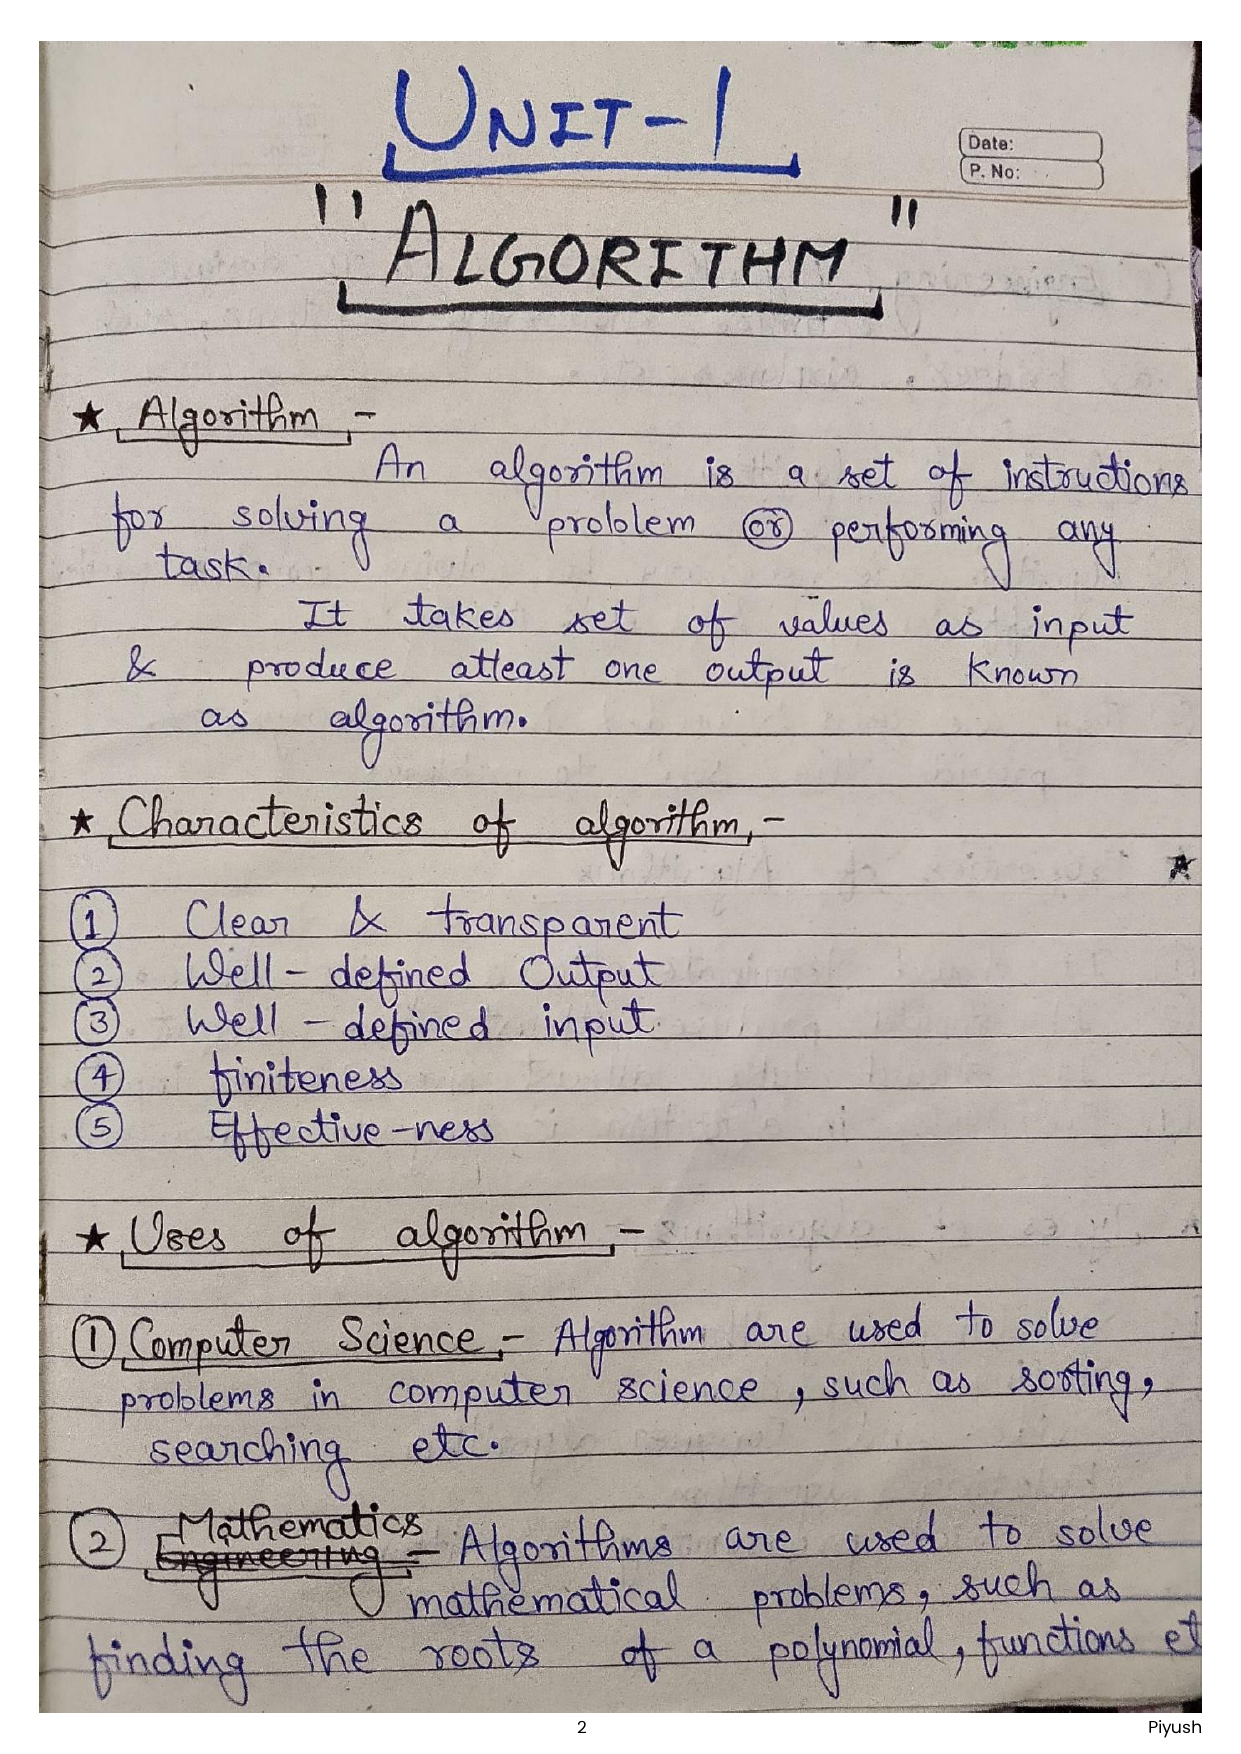 UNIT-1
Date:
P. No:
"ALGORITHM"
★ Algorithm -
An algorithm is a set of instructions
for solving a problem or performing any
task.
It takes set of values as input
& produce atleast one output is known
as algorithm.
★ Characteristics of algorithm,-
★
1 Clear & transparent
2 Well-defined Output
3 Well-defined input
4 finiteness
5 Effective-ness
★ Uses of algorithm,-
1 Computer Science,- Algorithm are used to solve
problems in computer science, such as sorting,
searching etc.
2 Mathematics
Engineering - Algorithms are used to solve
mathematical problems, such as
finding the roots of a polynomial, functions et
2
Piyush